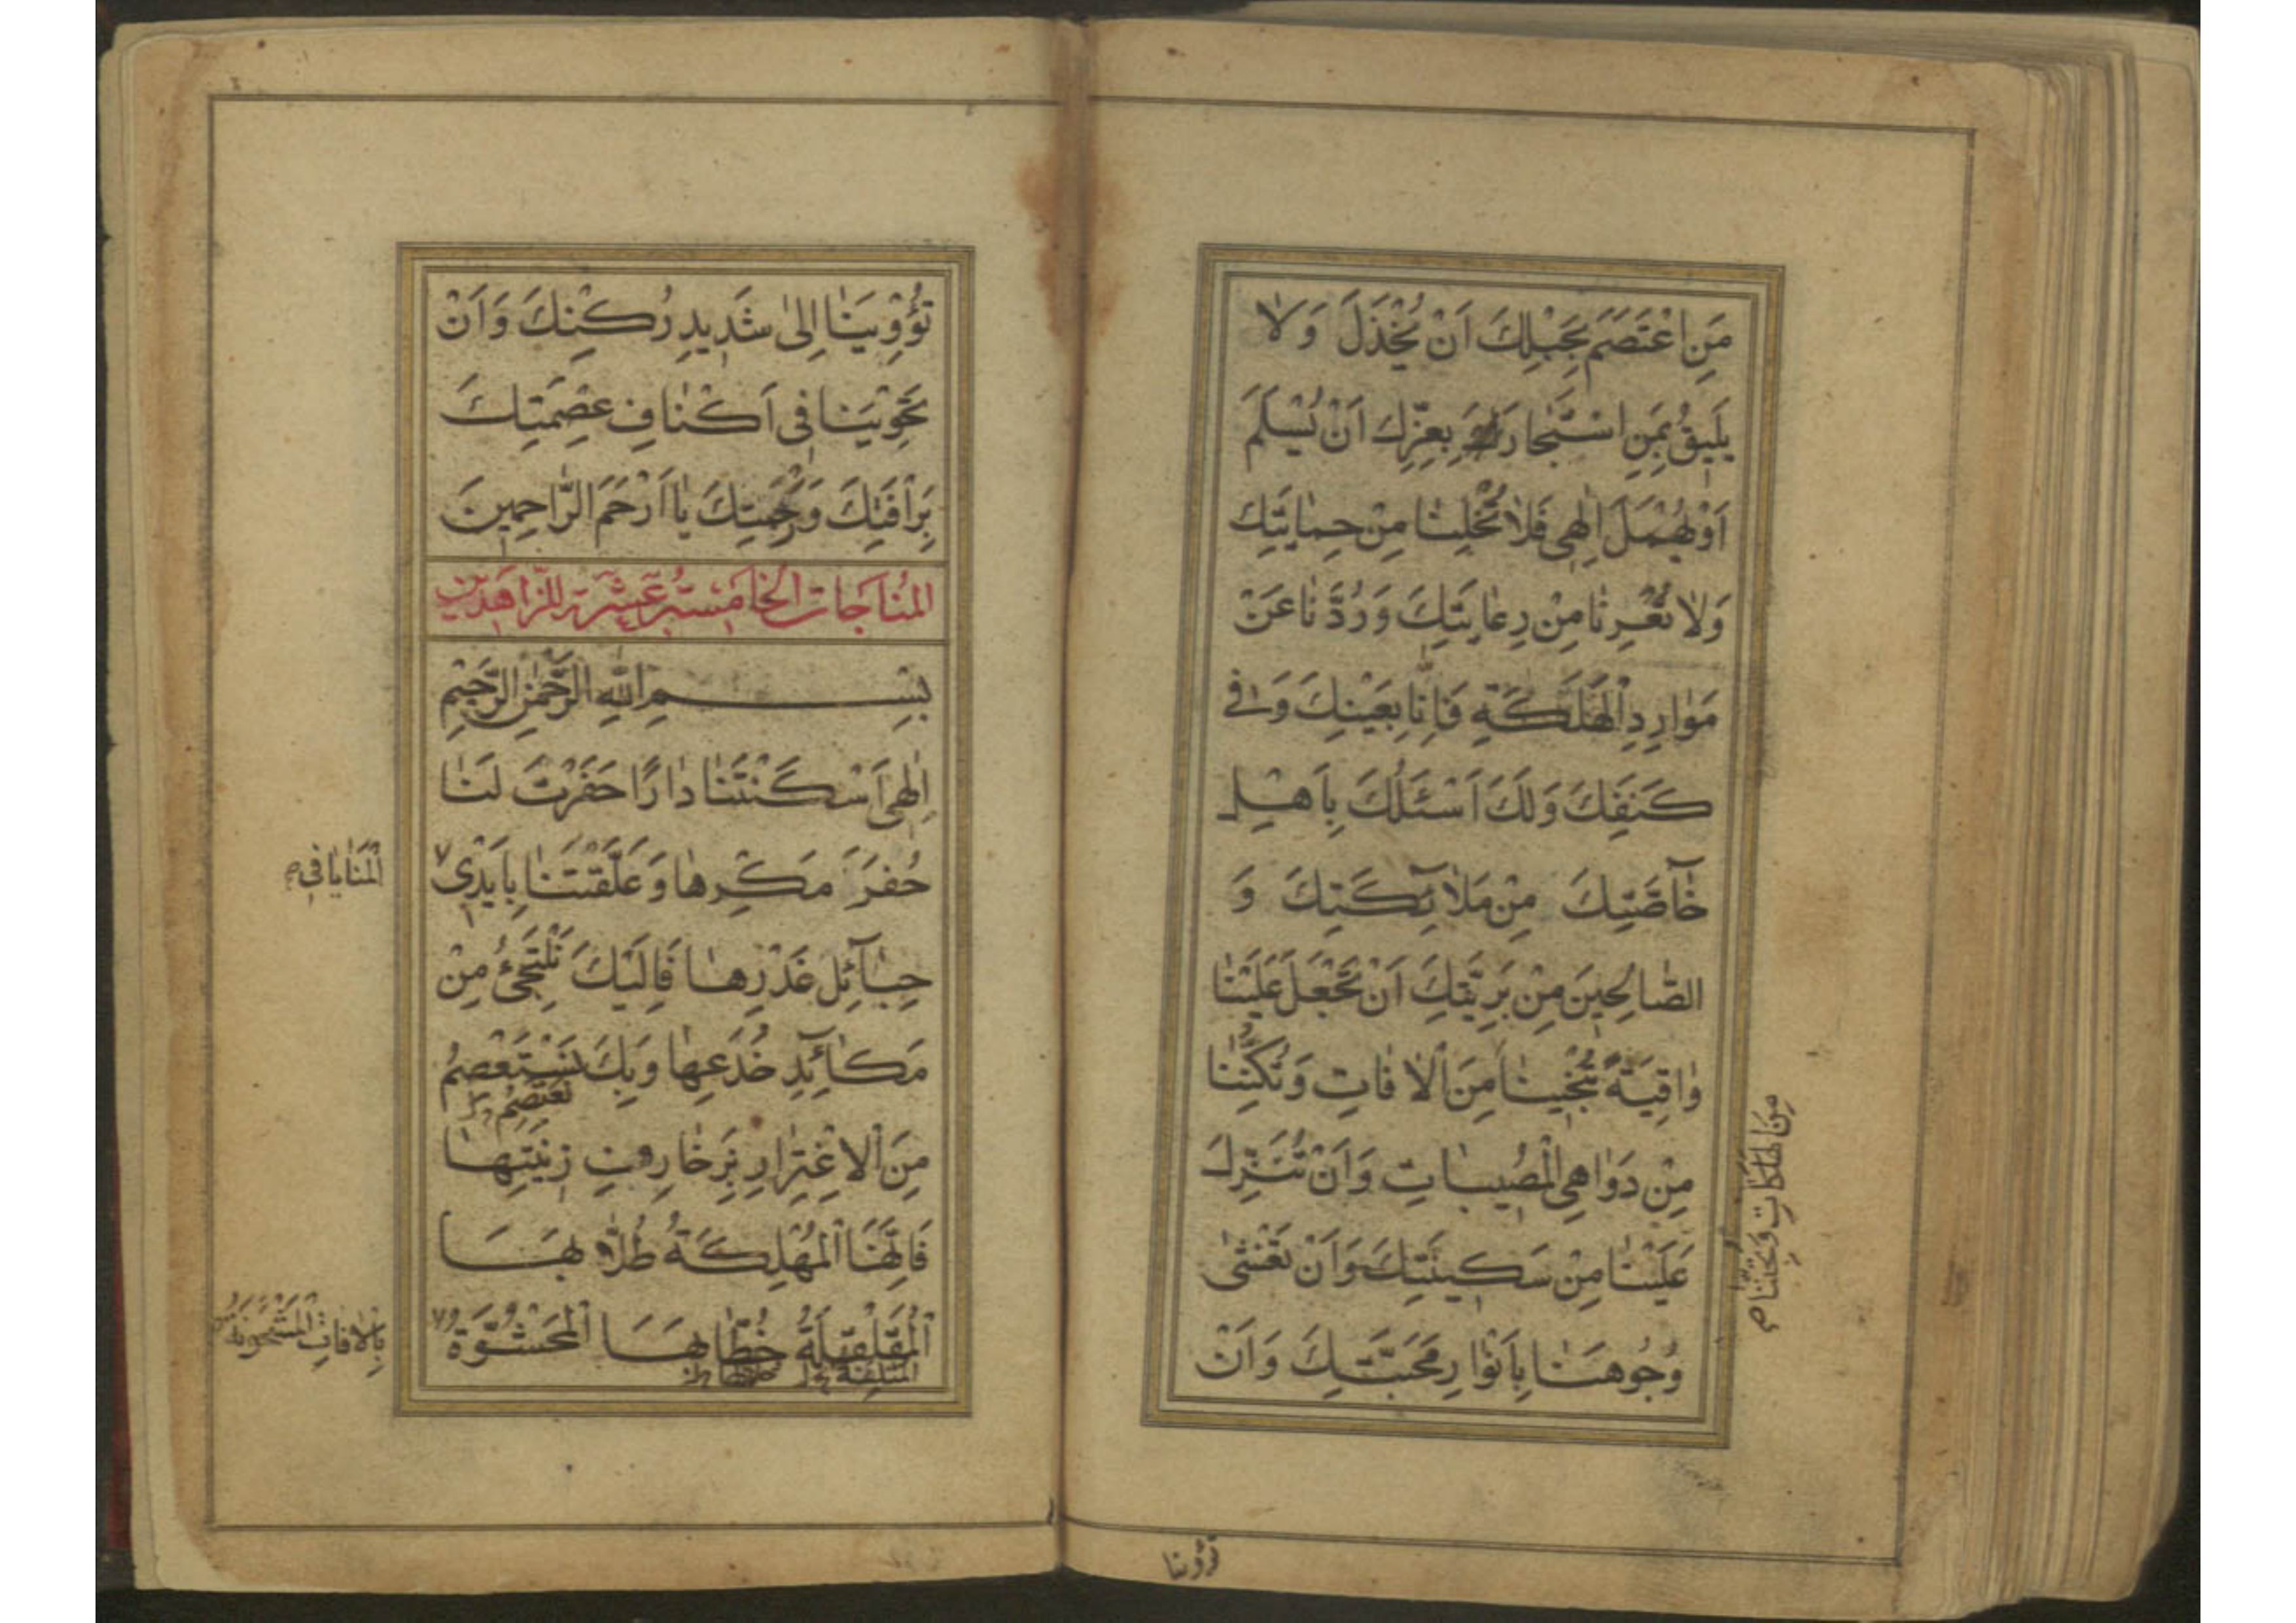 مَنِ اعْتَصَمَ بِحَبْلِكَ اَنْ يُخْذَلَ وَلاٰ
يَلِيقُ بِمَنِ اسْتَجٰارَ بِعِزِّكَ اَنْ يُسْلَمَ
اَوْ يُهْمَلَ اِلٰهِى فَلاٰ تُخْلِنٰا مِنْ حِمٰايَتِكَ
وَلاٰ تُعْرِنٰا مِنْ رِعٰايَتِكَ وَرُدَّنٰا عَنْ
مَوٰارِدِ الْهَلَكَةِ فَاِنّٰا بِعَيْنِكَ وَفى
كَنَفِكَ وَلَكَ اَسْئَلُكَ بِاَهْلِ
خٰآصَّتِكَ مِنْ مَلاٰئِكَتِكَ وَ
الصّٰالِحِينَ مِنْ بَرِيَّتِكَ اَنْ تَجْعَلَ عَلَيْنٰا
وٰاقِيَةً تُنْجِينٰا مِنَ الْاٰفٰاتِ وَتُكِنُّنٰا
مِنْ دَوٰاهِى الْمُصِيبٰاتِ وَاَنْ تُنَزِّلَ
عَلَيْنٰا مِنْ سَكِينَتِكَ وَاَنْ تُغَشّٰى
وُجُوهَنٰا بِاَنْوٰارِ مَحَبَّتِكَ وَاَنْ
مِنَ الهَلَكٰاتِ وَتُجَنِّبَنٰا
تؤوينا
تُؤْوِيَنٰا اِلىٰ شَدِيدِ رُكْنِكَ وَاَنْ
تَحْوِيَنٰا فِى اَكْنٰافِ عِصْمَتِكَ
بِرَأْفَتِكَ وَرَحْمَتِكَ يٰا اَرْحَمَ الرّٰاحِمِينَ
المُنَاجَات الخَامِسَة عَشَرَة للزَّاهِدِين
بِسْمِ اللّٰهِ الرَّحْمٰنِ الرَّحِيمِ
اِلٰهِى اَسْكَنْتَنٰا دٰارًا حَفَرَتْ لَنٰا
حُفَرَ مَكْرِهٰا وَعَلَّقَتْنٰا بِاَيْدِى
الْمَنٰايٰا فِى
حَبٰآئِلِ غَدْرِهٰا فَاِلَيْكَ نَلْتَجِئُ مِنْ
مَكٰآئِدِ خُدَعِهٰا وَبِكَ نَسْتَعْصِمُ
نَعْتَصِمُ
مِنَ الْاِغْتِرٰارِ بِزَخٰارِفِ زِينَتِهٰا
فَاِنَّهَا الْمُهْلِكَةُ طُلّٰابَهَا
الْمُتْلِفَةُ
الْمَحْشُوَّةُ
بِالْاٰفاتِ الْمَشْحُونَةُ